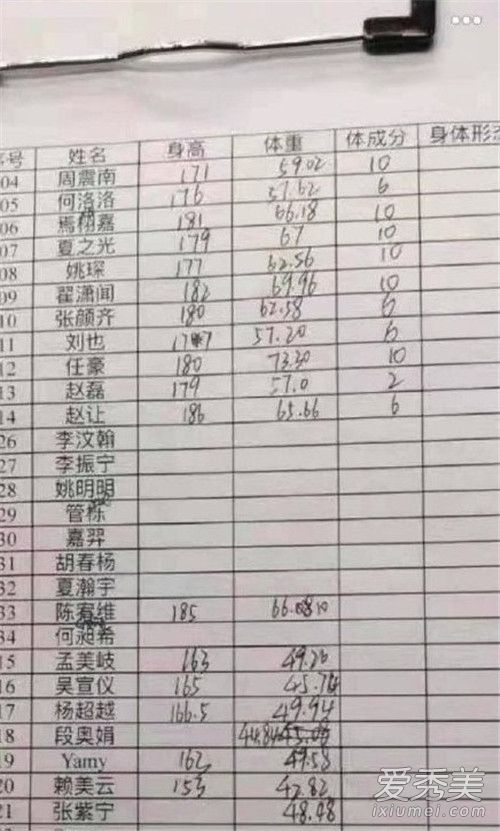 序号 姓名 身高 体重 体成分 身体形态
04 周震南 171 59.02 10
05 何洛洛 176 57.62 6
06 焉栩嘉 181 66.18 10
07 夏之光 179 67 10
08 姚琛 177 62.56 10
09 翟潇闻 182 69.96 10
10 张颜齐 180 62.58 6
11 刘也 57.20 6
12 任豪 180 73.30 10
13 赵磊 179 57.0 2
14 赵让 186 65.66 6
26 李汶翰
27 李振宁
28 姚明明
29 管栎
30 嘉羿
31 胡春杨
32 夏瀚宇
33 陈宥维 185
34 何昶希
15 孟美岐 163 49.26
16 吴宣仪 165 45.74
17 杨超越 166.5 49.94
18 段奥娟
19 Yamy 162 49.58
20 赖美云 153 42.82
21 张紫宁 48.48
爱秀美
ixiumei.com